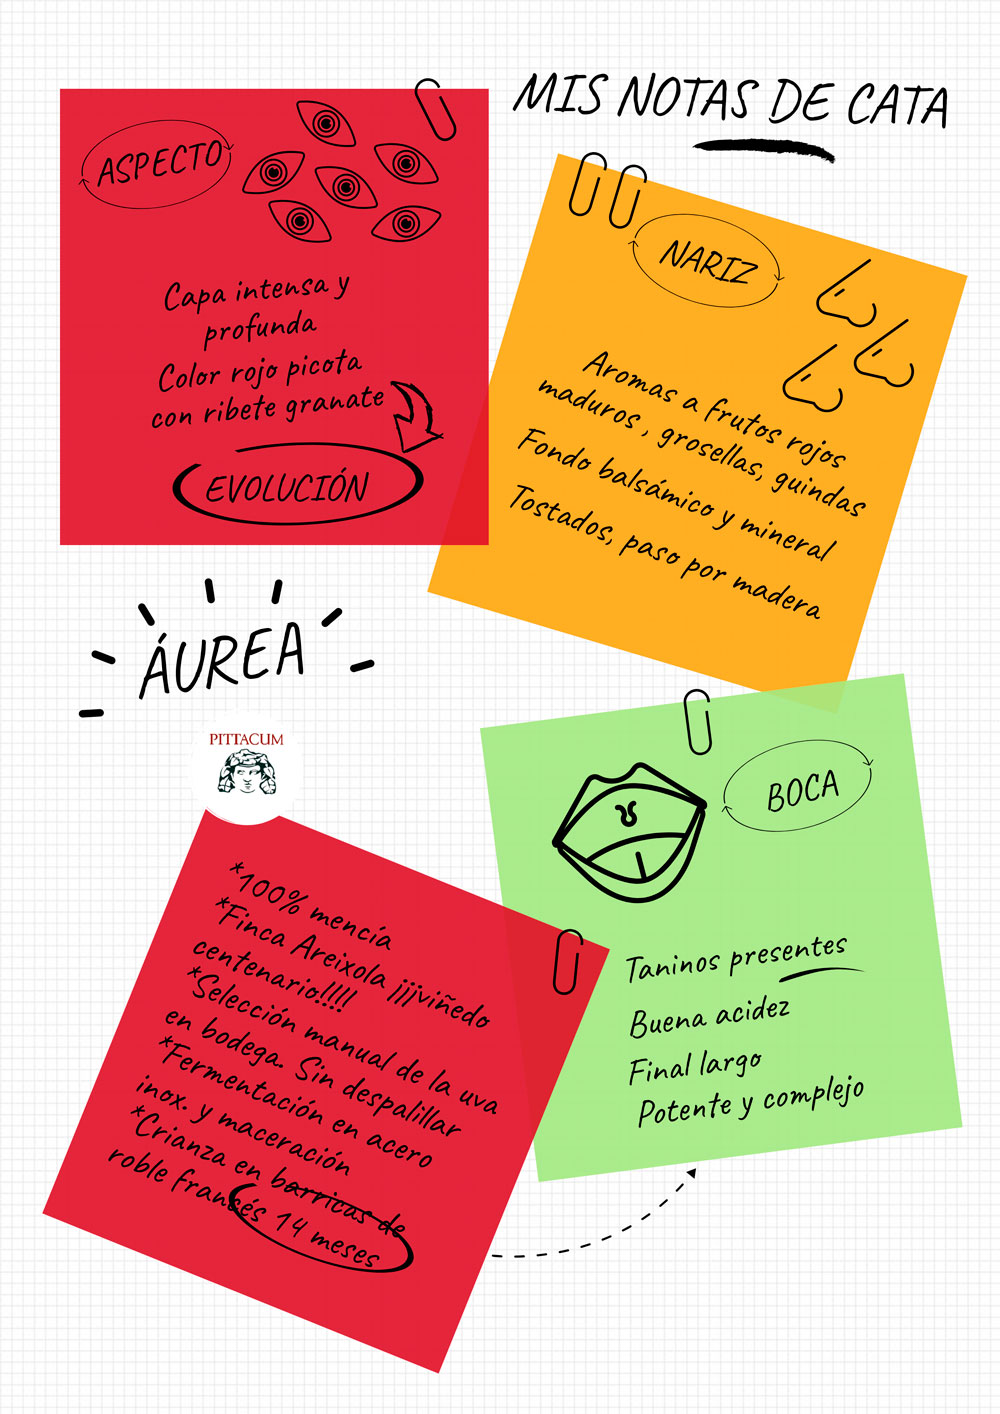 MIS NOTAS DE CATA
ASPECTO
Capa intensa y
profunda
Color rojo picota
con ribete granate
EVOLUCIÓN
NARIZ
Aromas a frutos rojos
maduros , grosellas, guindas
Fondo balsámico y mineral
Tostados, paso por madera
ÁUREA
PITTACUM
*100% mencía
*Finca Areixola ¡¡¡viñedo
centenario!!!!
*Selección manual de la uva
en bodega. Sin despalillar
*Fermentación en acero
inox. y maceración
*Crianza en barricas de
roble francés 14 meses
BOCA
Taninos presentes
Buena acidez
Final largo
Potente y complejo